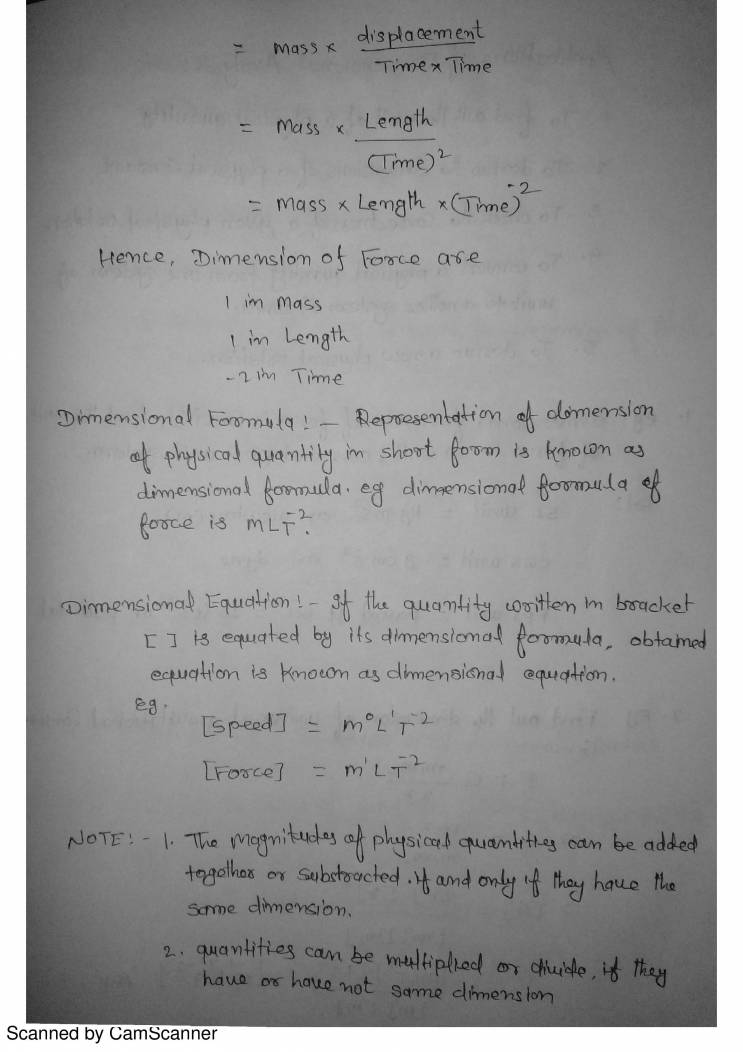 = Mass × displacement / Time × Time
= Mass × Length / (Time)²
= Mass × Length × (Time)⁻²
Hence, Dimension of Force are
1 in Mass
1 in Length
-2 in Time
Dimensional Formula :- Representation of dimension
of physical quantity in short form is known as
dimensional formula. eg dimensional formula of
force is MLT⁻².
Dimensional Equation :- If the quantity written in bracket
[ ] is equated by its dimensional formula, obtained
equation is known as dimensional equation.
Eg.
[Speed] = M⁰L¹T⁻²
[Force] = M¹LT⁻²
NOTE :- 1. The magnitudes of physical quantities can be added
together or substracted. if and only if they have the
same dimension.
2. quantities can be multiplied or divide, if they
have or have not same dimension
Scanned by CamScanner